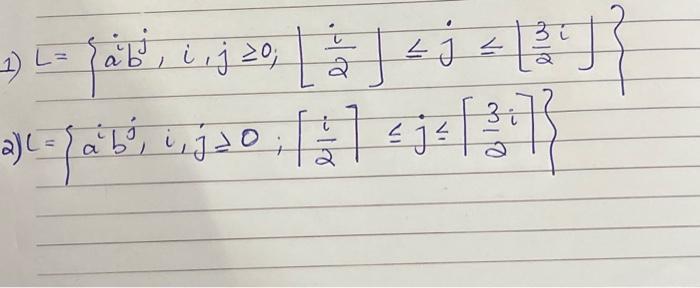 1) L = { aⁱbʲ, i, j ≥0; ⌊i/2⌋ ≤ j ≤ ⌊3/2 i⌋ }
2) L = { aⁱbʲ, i, j ≥ 0; ⌈i/2⌉ ≤ j ≤ ⌈3/2 i⌉ }